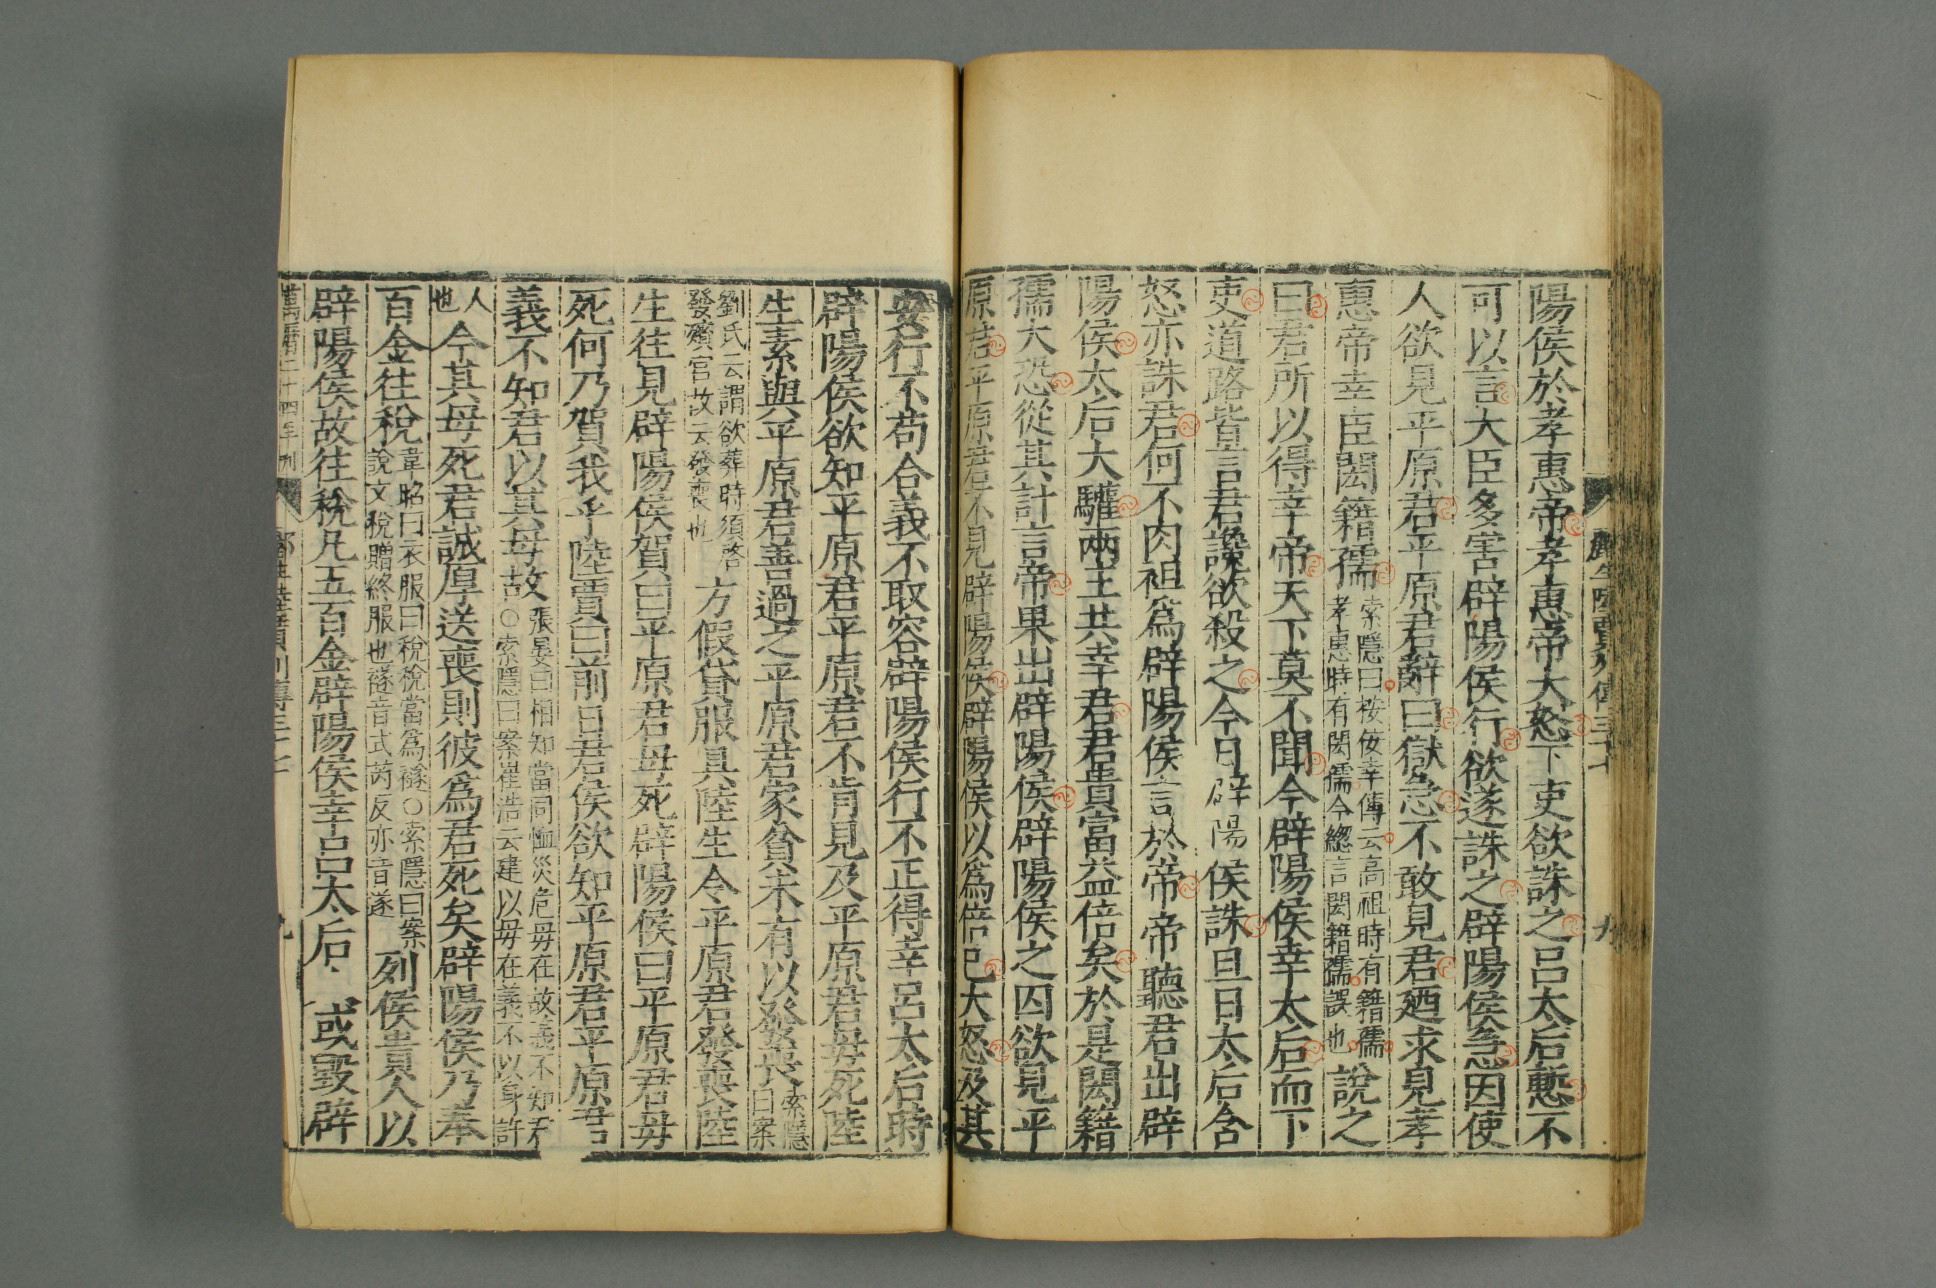 陽侯於孝惠帝孝惠帝大怒下吏欲誅之呂太后慙不
可以言大臣多害辟陽侯行欲遂誅之辟陽侯急因使
人欲見平原君平原君辭曰獄急不敢見君廼求見孝
惠帝幸臣閎籍孺
索隱曰按佞幸傳云高祖時有籍孺
孝惠時有閎孺今緫言閎籍孺誤也
說之
曰君所以得幸帝天下莫不聞今辟陽侯幸太后而下
吏道路皆言君讒欲殺之今日辟陽侯誅旦日太后含
怒亦誅君何不肉袒爲辟陽侯言於帝帝聽君出辟
陽侯太后大驩兩主共幸君君貴富益倍矣於是閎籍
孺大恐從其計言帝果出辟陽侯辟陽侯之囚欲見平
原君平原君不見辟陽侯辟陽侯以爲倍已大怒及其
安行不苟合義不取容辟陽侯行不正得幸呂太后時
辟陽侯欲知平原君平原君不肯見及平原君母死陸
生素與平原君善過之平原君家貧未有以發喪
索隱
曰案
劉氏云謂欲葬時須啓
發殯宮故云發喪也
方假貸服具陸生令平原君發喪陸
生往見辟陽侯賀曰平原君母死辟陽侯曰平原君母
死何乃賀我乎陸賈曰前日君侯欲知平原君平原君
義不知君以其母故
張晏曰相知當同恤災危母在故義不知君
○索隱曰案崔浩云建以母在義不以身許
人
也
今其母死君誠厚送喪則彼爲君死矣辟陽侯乃奉
百金往稅
韋昭曰衣服曰稅稅當爲襚○索隱曰案
說文稅贈終服也襚音式芮反亦音遂
列侯貴人以
辟陽侯故往稅凡五百金辟陽侯幸呂太后 或毀辟
萬曆二十四年刊
酈生陸賈列傳三十七
九